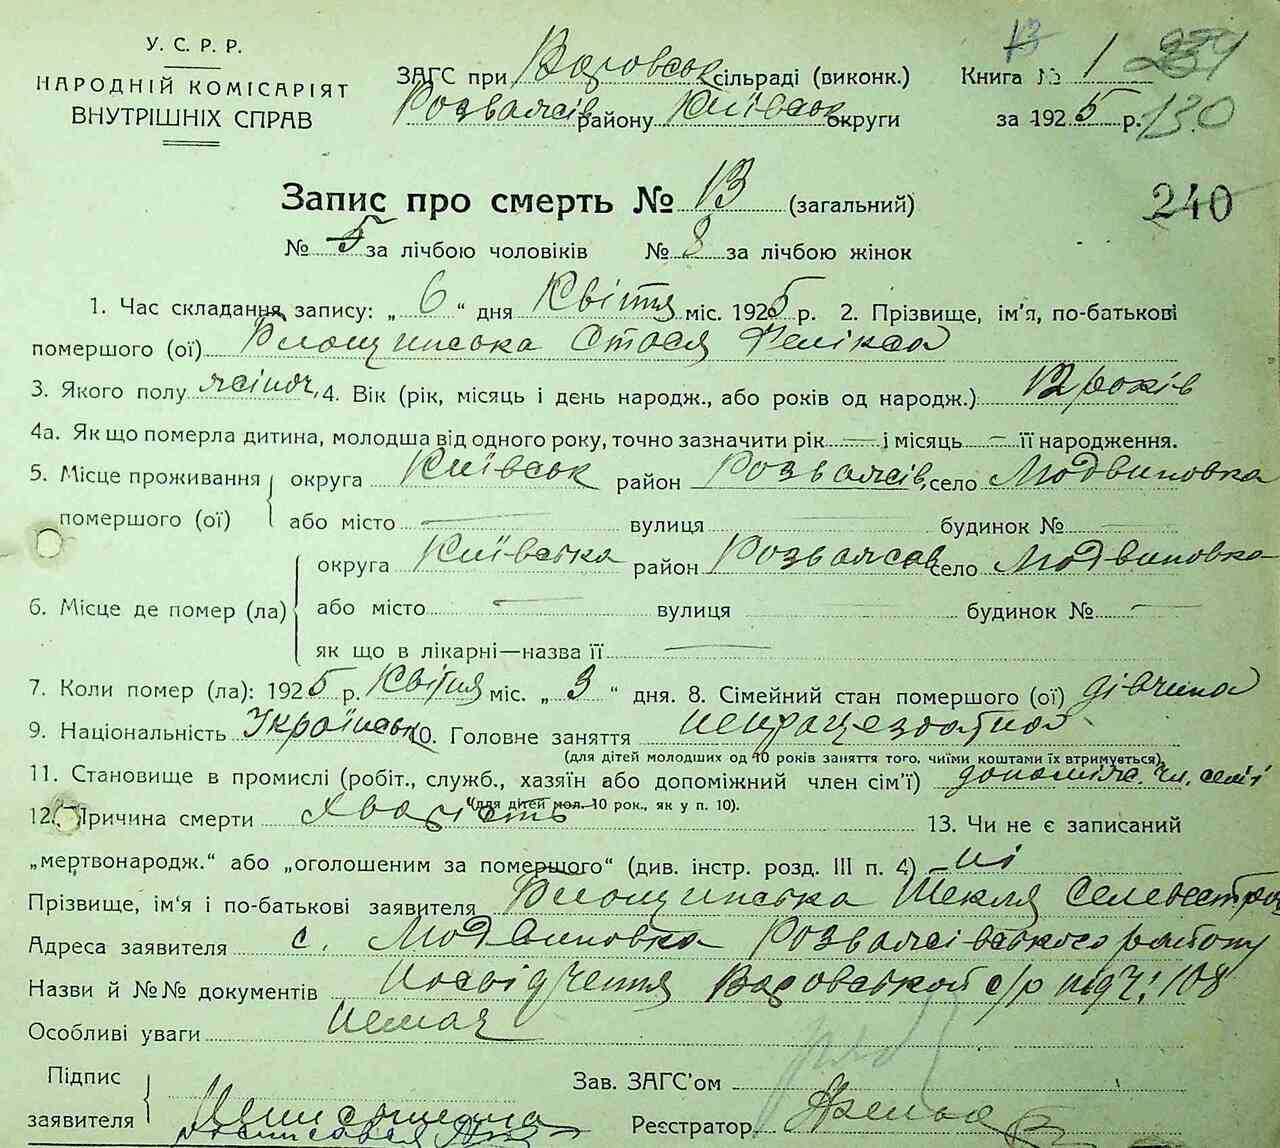 У. С. Р. Р.
НАРОДНІЙ КОМІСАРІЯТ
ВНУТРІШНІХ СПРАВ
ЗАГС при сільраді (виконк.)
району Київськ округи
Книга № 1
за 1925 р. 130
Запис про смерть № 13 (загальний)
240
№ 5 за лічбою чоловіків № 8 за лічбою жінок
1. Час складання запису: „ 6 “ дня Квітня міс. 1925 р. 2. Прізвище, ім'я, по-батькові
помершого (ої) Стася Фелікса
3. Якого полу жіноч. 4. Вік (рік, місяць і день народж., або років од народж.) 12 років
4а. Як що померла дитина, молодша від одного року, точно зазначити рік — і місяць — її народження.
5. Місце проживання помершого (ої)
округа Київськ район Розважів. село Модвиновка
або місто — вулиця — будинок № —
6. Місце де помер (ла)
округа Київська район село Модвиновка
або місто — вулиця — будинок № —
як що в лікарні—назва її —
7. Коли помер (ла): 1925 р. Квітня міс. „ 3 “ дня. 8. Сімейний стан помершого (ої) дівчина
9. Національність Українськ 10. Головне заняття непрацездатна
(для дітей молодших од 10 років заняття того, чиїми коштами їх втримується)
11. Становище в промислі (робіт., служб., хазяїн або допоміжний член сім'ї) допоміж. чл. семї
(для дітей мол. 10 рок., як у п. 10).
12. Причина смерти 13. Чи не є записаний
„мертвонародж.“ або „оголошеним за помершого“ (див. інстр. розд. III п. 4) ні
Прізвище, ім'я і по-батькові заявителя
Адреса заявителя с. Модвиновка Розважівського району
Назви й №№ документів Посвідчення с/р 108
Особливі уваги Немає
Підпис заявителя
Зав. ЗАГС'ом
Реєстратор